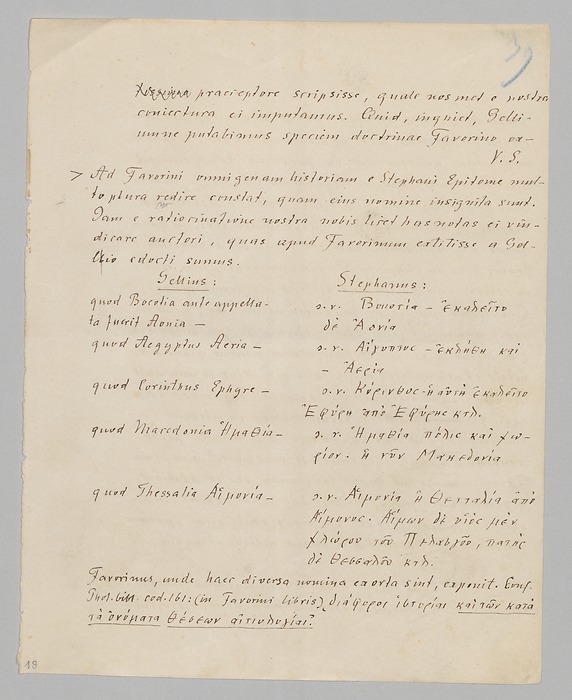 39
praeceptore scripsisse, quale nosmet e nostra
coniectura ei imputamus. Quid, inquiet, Gelli-
umne putabimus speciem doctrinae Favorino
V. S.
> Ad Favorini omnigenam historiam e Stephani Epitome mul-
to plura redire constat, quam eius nomine insignita sunt.
Iam e ratiocinatione nostra nobis licet has notas ei vin-
dicare auctori, quas apud Favorinum extitisse a Gel-
lio edocti sumus.
Gellius: Stephanus:
quod Boeotia ante appella- s.v. Βοιωτία – ἐκαλεῖτο
ta fuerit Aonia – δὲ Ἀονία
quod Aegyptus Aeria – s.v. Αἴγυπτος – ἐκλήθη καὶ
– Ἀερία
quod Corinthus Ephyre – s.v. Κόρινθος – ἡ αὐτὴ ἐκαλεῖτο
Ἐφύρη ἀπὸ Ἐφύρης κτλ.
quod Macedonia Ἠμαθία – s.v. Ἠμαθία πόλις καὶ χω-
ρίον. ἡ νῦν Μακεδονία
quod Thessalia Αἱμονία – s.v. Αἱμονία ἡ Θετταλία ἀπὸ
Αἵμονος. Αἵμων δὲ υἱὸς μὲν
χλώρου τοῦ Πελασγοῦ, πατὴρ
δὲ Θεσσαλοῦ κτλ.
Favorinus, unde haec diversa nomina exorta sint, exponit. Conf.
Phot. bibl. cod. 161: (in Favorini libris) διάφοροι ἱστορίαι καὶ τῶν κατὰ
τὰ ὀνόματα θέσεων αἰτιολογίαι.
18